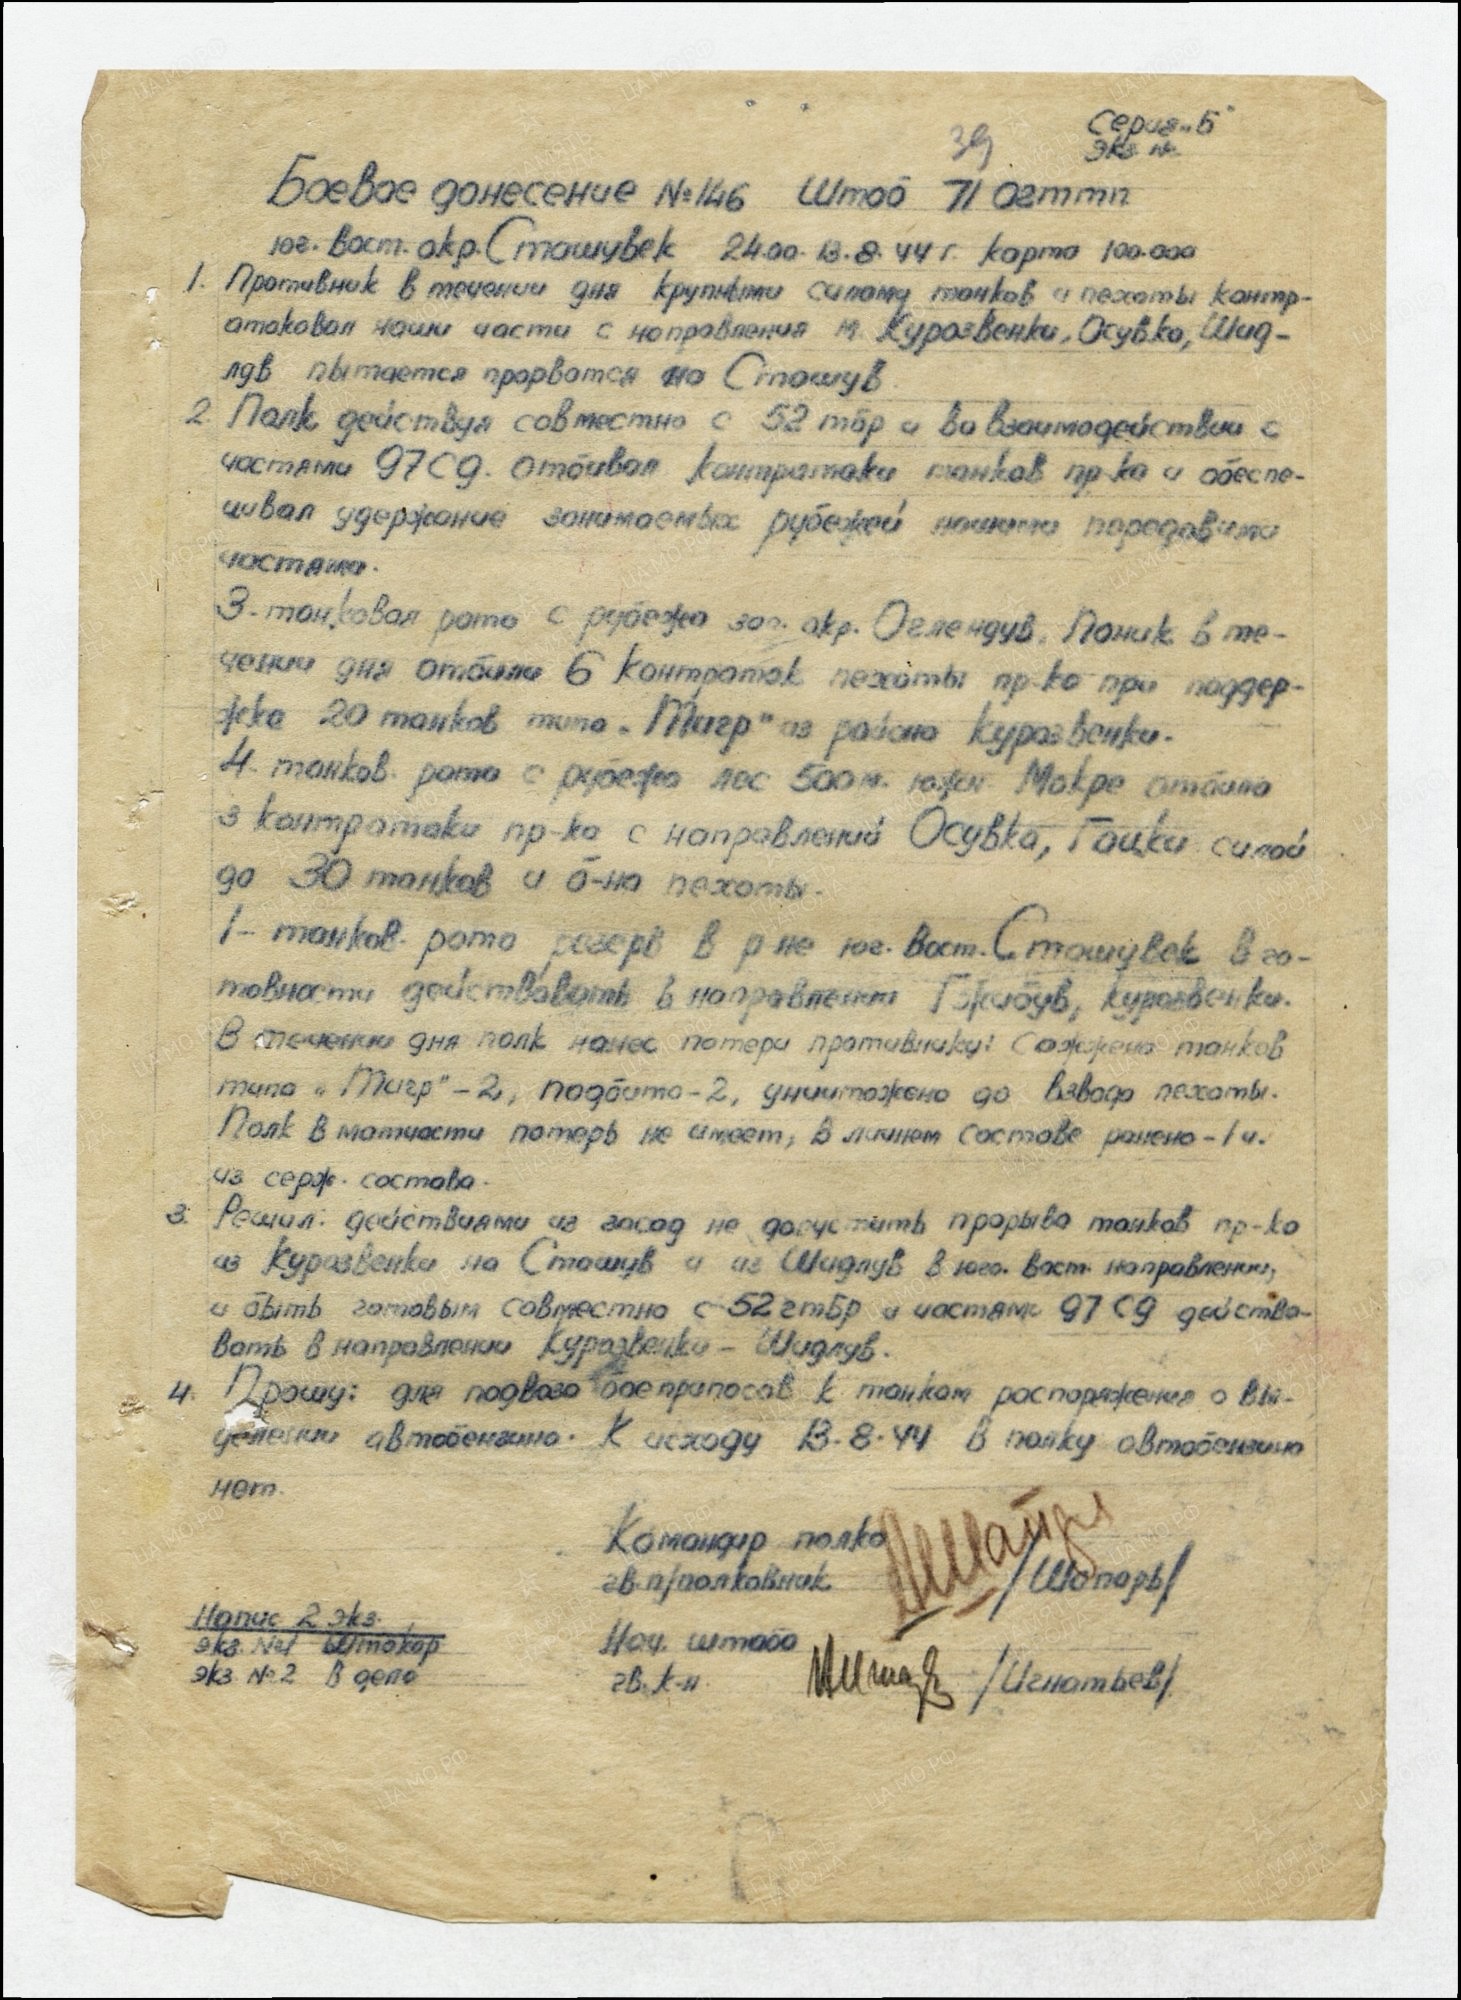 Серия "Б"
39 экз №
Боевое донесение №146 Штаб 71 огттп
юг. вост. окр. Сташувек 24.00. 13.8.44 г. карта 100.000
1. Противник в течении дня крупными силами танков и пехоты контр-
атаковал наши части с направления м. Курозвенки, Осувка, Шид-
лув пытается прорватся на Сташув.
2. Полк действуя совместно с 52 тбр и во взаимодействии с
частями 97 сд. отбивал контратаки танков пр-ка и обеспе-
чивал удержание занимаемых рубежей нашими передовыми
частями.
3-танковая рота с рубежа зап. окр. Оглендув, Поник в те-
чении дня отбили 6 контратак пехоты пр-ка при поддер-
жке 20 танков типа "Тигр" из района Курозвенки.
4-танков. рота с рубежа лес 500 м. южн. Мокре отбила
3 контратаки пр-ка с направлений Осувка, Гацки силой
до 30 танков и б-на пехоты.
1-танков. рота резерв в р-не юг. вост. Сташувек в го-
товности действовать в направлении Гжибув, Курозвенки.
В течении дня полк нанес потери противнику: сожжено танков
типа "Тигр"-2, подбито-2, уничтожено до взвода пехоты.
Полк в матчасти потерь не имеет, в личнем составе ранено-1 ч.
из серж. состава.
3. Решил: действиями из засад не допустить прорыва танков пр-ка
из Курозвенки на Сташув и из Шидлув в юго. вост. направлении,
и быть готовым совместно с 52 гтбр и частями 97 сд действо-
вать в направлении Курозвенки - Шидлув.
4. Прошу: для подвоза боеприпасов к танкам распоряжения о вы-
делении автобензина. К исходу 13.8.44 в полку автобензина
нет.
Командир полка
гв. п/полковник /Шапарь/
Напис 2 экз.
экз. №1 Штакор
экз №2 в дело
Нач. штаба
гв. к-н /Игнатьев/
ПАМЯТЬ НАРОДА
ЦАМО.РФ